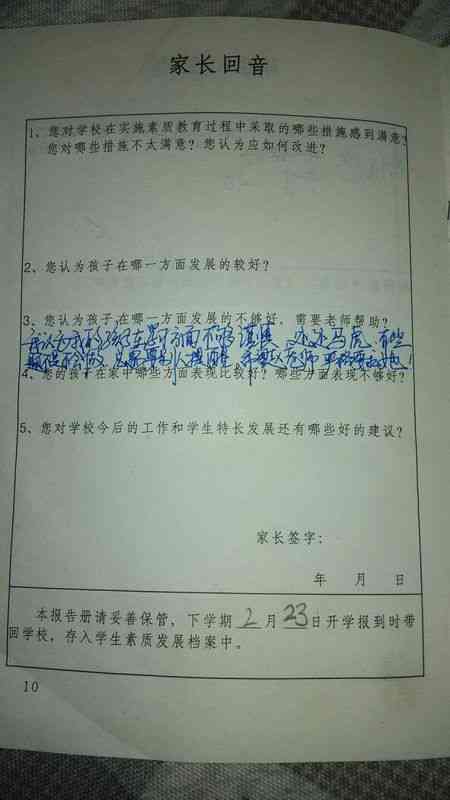 家长回音
1、您对学校在实施素质教育过程中采取的哪些措施感到满意?
您对哪些措施不太满意?您认为应如何改进?
2、您认为孩子在哪一方面发展的较好?
3、您认为孩子在哪一方面发展的不够好,需要老师帮助?
我认为我的孩子在学习方面不够谨慎、还还马虎,有些
题目不会做
老师严格要求她!
4、您的孩子在家中哪些方面表现比较好?哪些方面表现不够好?
5、您对学校今后的工作和学生特长发展还有哪些好的建议?
家长签字:
年 月 日
本报告册请妥善保管,下学期2月23日开学报到时带
回学校,存入学生素质发展档案中。
10